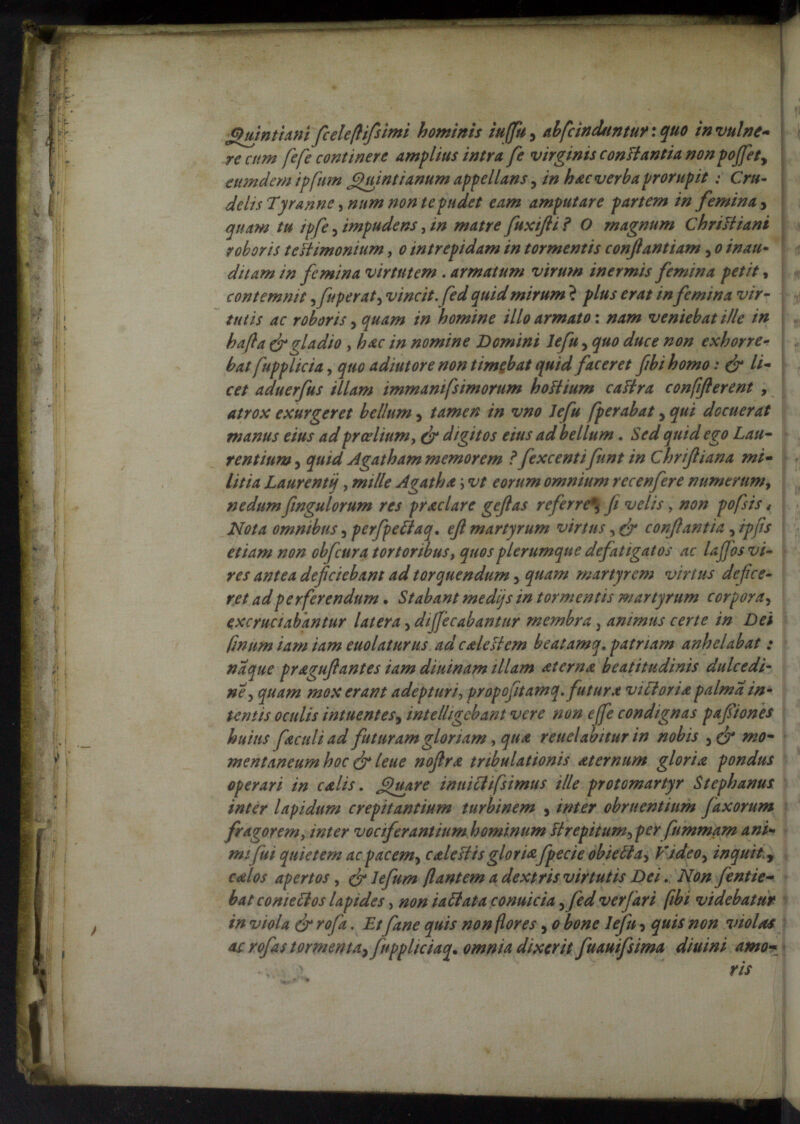 Quintiani sceleſtiſsimi hominis iuſſu, abſcinduntur: quo in vulne-
re cum ſeſe continere amplius intra ſe virginis conſtantia non poſſet,
eumdem ipſum Quintianum appellans, in hæc verba prorupit: Cru-
delis Tyranne, num non te pudet eam amputare partem in femina,
quam tu ipſe, impudens, in matre ſuxiſti? O magnum Chriſtiani
roboris teſtimonium, o intrepidam in tormentis conſtantiam, o inau-
ditam in femina virtutem. armatum virum inermis femina petit,
contemnit, ſuperat, vincit. ſed quid mirum? plus erat in femina vir-
tutis ac roboris, quam in homine illo armato: nam veniebat ille in
haſta & gladio, hæc in nomine Domini Ieſu, quo duce non exhorre-
bat ſupplicia, quo adiutore non timebat quid faceret ſibi homo: & li-
cet aduerſus illam immaniſsimorum hoſtium caſtra conſiſterent,
atrox exurgeret bellum, tamen in vno Ieſu ſperabat, qui docuerat
manus eius ad prœlium, & digitos eius ad bellum. Sed quid ego Lau-
rentium, quid Agatham memorem? ſexcenti ſunt in Chriſtiana mi-
litia Laurentij, mille Agathæ; vt eorum omnium recenſere numerum,
nedum ſingulorum res præclare geſtas referre, ſi velis, non poſsis.
Nota omnibus, perſpectaq. eſt martyrum virtus, & conſtantia, ipſis
etiam non obſcura tortoribus, quos plerumque defatigatos ac laſſos vi-
res antea deficiebant ad torquendum, quam martyrem virtus defice-
ret ad perferendum. Stabant medijs in tormentis martyrum corpora,
excruciabantur latera, diſſecabantur membra, animus certe in Dei
ſinum iam iam euolaturus ad cæleſtem beatamq. patriam anhelabat:
nãque præguſtantes iam diuinam illam æternæ beatitudinis dulcedi-
nẽ, quam mox erant adepturi, propoſitamq. futuræ victoriæ palmã in-
tentis oculis intuentes, intelligebant vere non eſſe condignas paſsiones
huius ſæculi ad futuram gloriam, quæ reuelabitur in nobis, & mo-
mentaneum hoc & leue noſtræ tribulationis æternum gloriæ pondus
operari in cælis. Quare inuictiſsimus ille protomartyr Stephanus
inter lapidum crepitantium turbinem, inter obruentium ſaxorum
fragorem, inter vociferantium hominum ſtrepitum, per ſummam ani-
mi ſui quietem ac pacem, cæleſtis gloriæ ſpecie obiecta, Video, inquit,
cælos apertos, & Ieſum ſtantem a dextris virtutis Dei. Non ſentie-
bat coniectos lapides, non iactata conuicia, ſed verſari ſibi videbatur
in viola & roſa. Et ſane quis non flores, o bone Ieſu, quis non violas
ac roſas tormenta, ſuppliciaq. omnia dixerit ſuauiſsima diuini amo-
ris